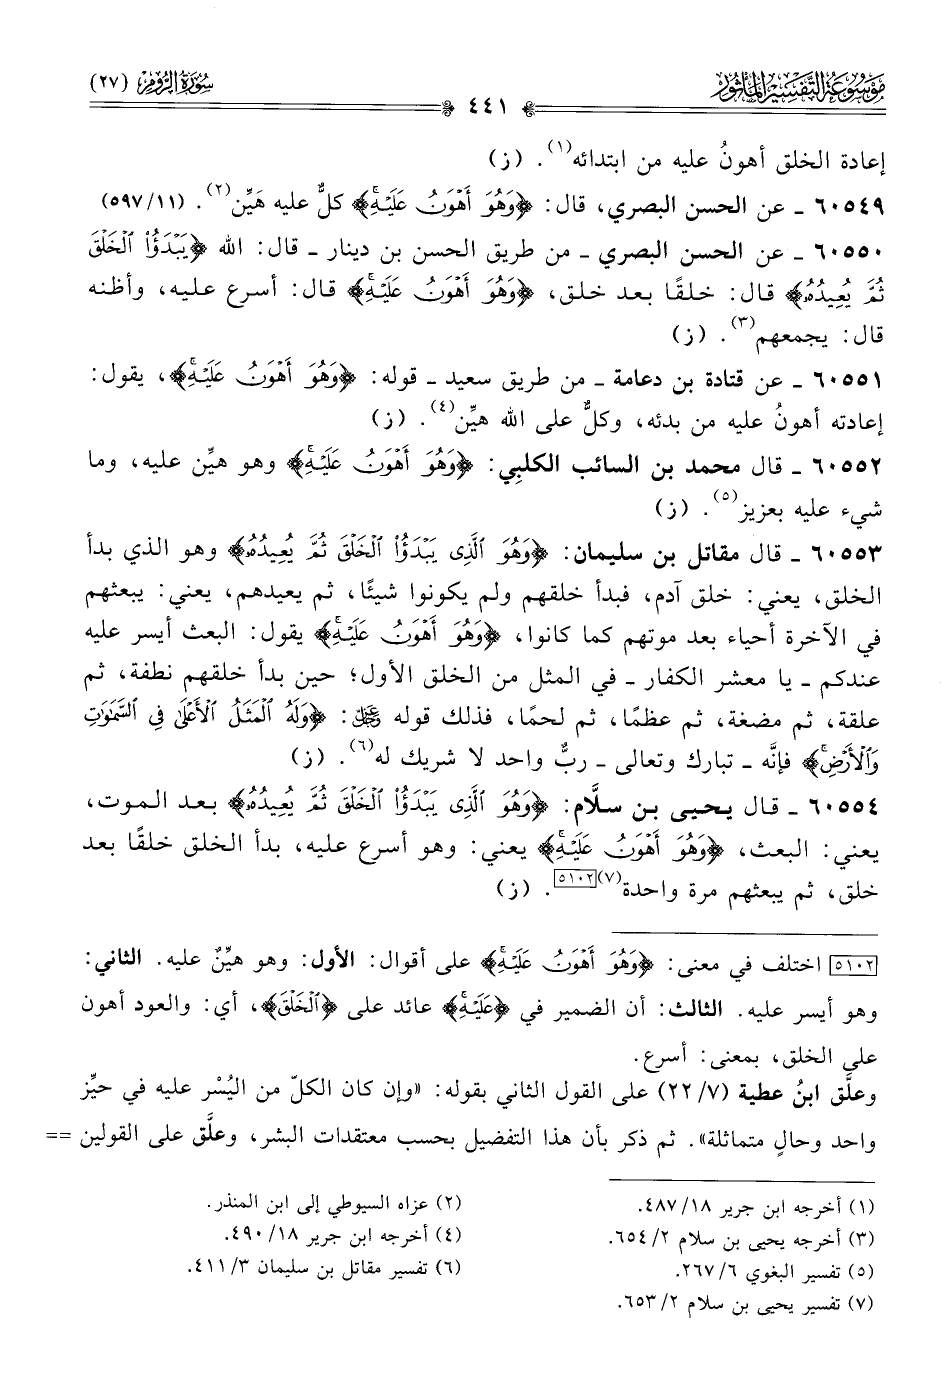 مَوْسُوعَة التَّفْسِير المَأثُور
٤٤١
سُورَةُ الرُّومِ (٢٧)
إعادة الخلق أهونُ عليه من ابتدائه(١). (ز)
٦٠٥٤٩ ـ عن الحسن البصري، قال: ﴿وَهُوَ أَهْوَنُ عَلَيْهِ﴾ كلٌّ عليه هَيِّن(٢). (٥٩٧/١١)
٦٠٥٥٠ ـ عن الحسن البصري ـ من طريق الحسن بن دينار ـ قال: الله ﴿يَبْدَؤُا الْخَلْقَ
ثُمَّ يُعِيدُهُ﴾ قال: خلقًا بعد خلق، ﴿وَهُوَ أَهْوَنُ عَلَيْهِ﴾ قال: أسرع عليه، وأظنه
قال: يجمعهم(٣). (ز)
٦٠٥٥١ ـ عن قتادة بن دعامة ـ من طريق سعيد ـ قوله: ﴿وَهُوَ أَهْوَنُ عَلَيْهِ﴾، يقول:
إعادته أهونُ عليه من بدئه، وكلٌّ على الله هيِّن(٤). (ز)
٦٠٥٥٢ ـ قال محمد بن السائب الكلبِي: ﴿وَهُوَ أَهْوَنُ عَلَيْهِ﴾ وهو هيِّن عليه، وما
شيء عليه بعزيز(٥). (ز)
٦٠٥٥٣ ـ قال مقاتل بن سليمان: ﴿وَهُوَ الَّذِي يَبْدَؤُا الْخَلْقَ ثُمَّ يُعِيدُهُ﴾ وهو الذي بدأ
الخلق، يعني: خلق آدم، فبدأ خلقهم ولم يكونوا شيئًا، ثم يعيدهم، يعني: يبعثهم
في الآخرة أحياء بعد موتهم كما كانوا، ﴿وَهُوَ أَهْوَنُ عَلَيْهِ﴾ يقول: البعث أيسر عليه
عندكم ـ يا معشر الكفار ـ في المثل من الخلق الأول؛ حين بدأ خلقهم نطفة، ثم
علقة، ثم مضغة، ثم عظمًا، ثم لحمًا، فذلك قوله عز وجل: ﴿وَلَهُ الْمَثَلُ الْأَعْلَى فِي السَّمَاوَاتِ
وَالْأَرْضِ﴾ فإنَّه ـ تبارك وتعالى ـ ربٌّ واحد لا شريك له(٦). (ز)
٦٠٥٥٤ ـ قال يحيى بن سلَّام: ﴿وَهُوَ الَّذِي يَبْدَؤُا الْخَلْقَ ثُمَّ يُعِيدُهُ﴾ بعد الموت،
يعني: البعث، ﴿وَهُوَ أَهْوَنُ عَلَيْهِ﴾ يعني: وهو أسرع عليه، بدأ الخلق خلقًا بعد
خلق، ثم يبعثهم مرة واحدة(٧)[٥١٠٢]. (ز)
[٥١٠٢] اختلف في معنى: ﴿وَهُوَ أَهْوَنُ عَلَيْهِ﴾ على أقوال: الأول: وهو هيِّنٌ عليه. الثاني:
وهو أيسر عليه. الثالث: أن الضمير في ﴿عَلَيْهِ﴾ عائد على ﴿الْخَلْقَ﴾، أي: والعود أهون
على الخلق، بمعنى: أسرع.
وعلَّق ابنُ عطية (٢٢/٧) على القول الثاني بقوله: «وإن كان الكلّ من اليُسْر عليه في حيِّز
واحد وحالٍ متماثلة». ثم ذكر بأن هذا التفضيل بحسب معتقدات البشر، وعلَّق على القولين ==
(١) أخرجه ابن جرير ١٨/ ٤٨٧.
(٢) عزاه السيوطي إلى ابن المنذر.
(٣) أخرجه يحيى بن سلام ٢/ ٦٥٤.
(٤) أخرجه ابن جرير ١٨/ ٤٩٠.
(٥) تفسير البغوي ٦/ ٢٦٧.
(٦) تفسير مقاتل بن سليمان ٣/ ٤١١.
(٧) تفسير يحيى بن سلام ٢/ ٦٥٣.